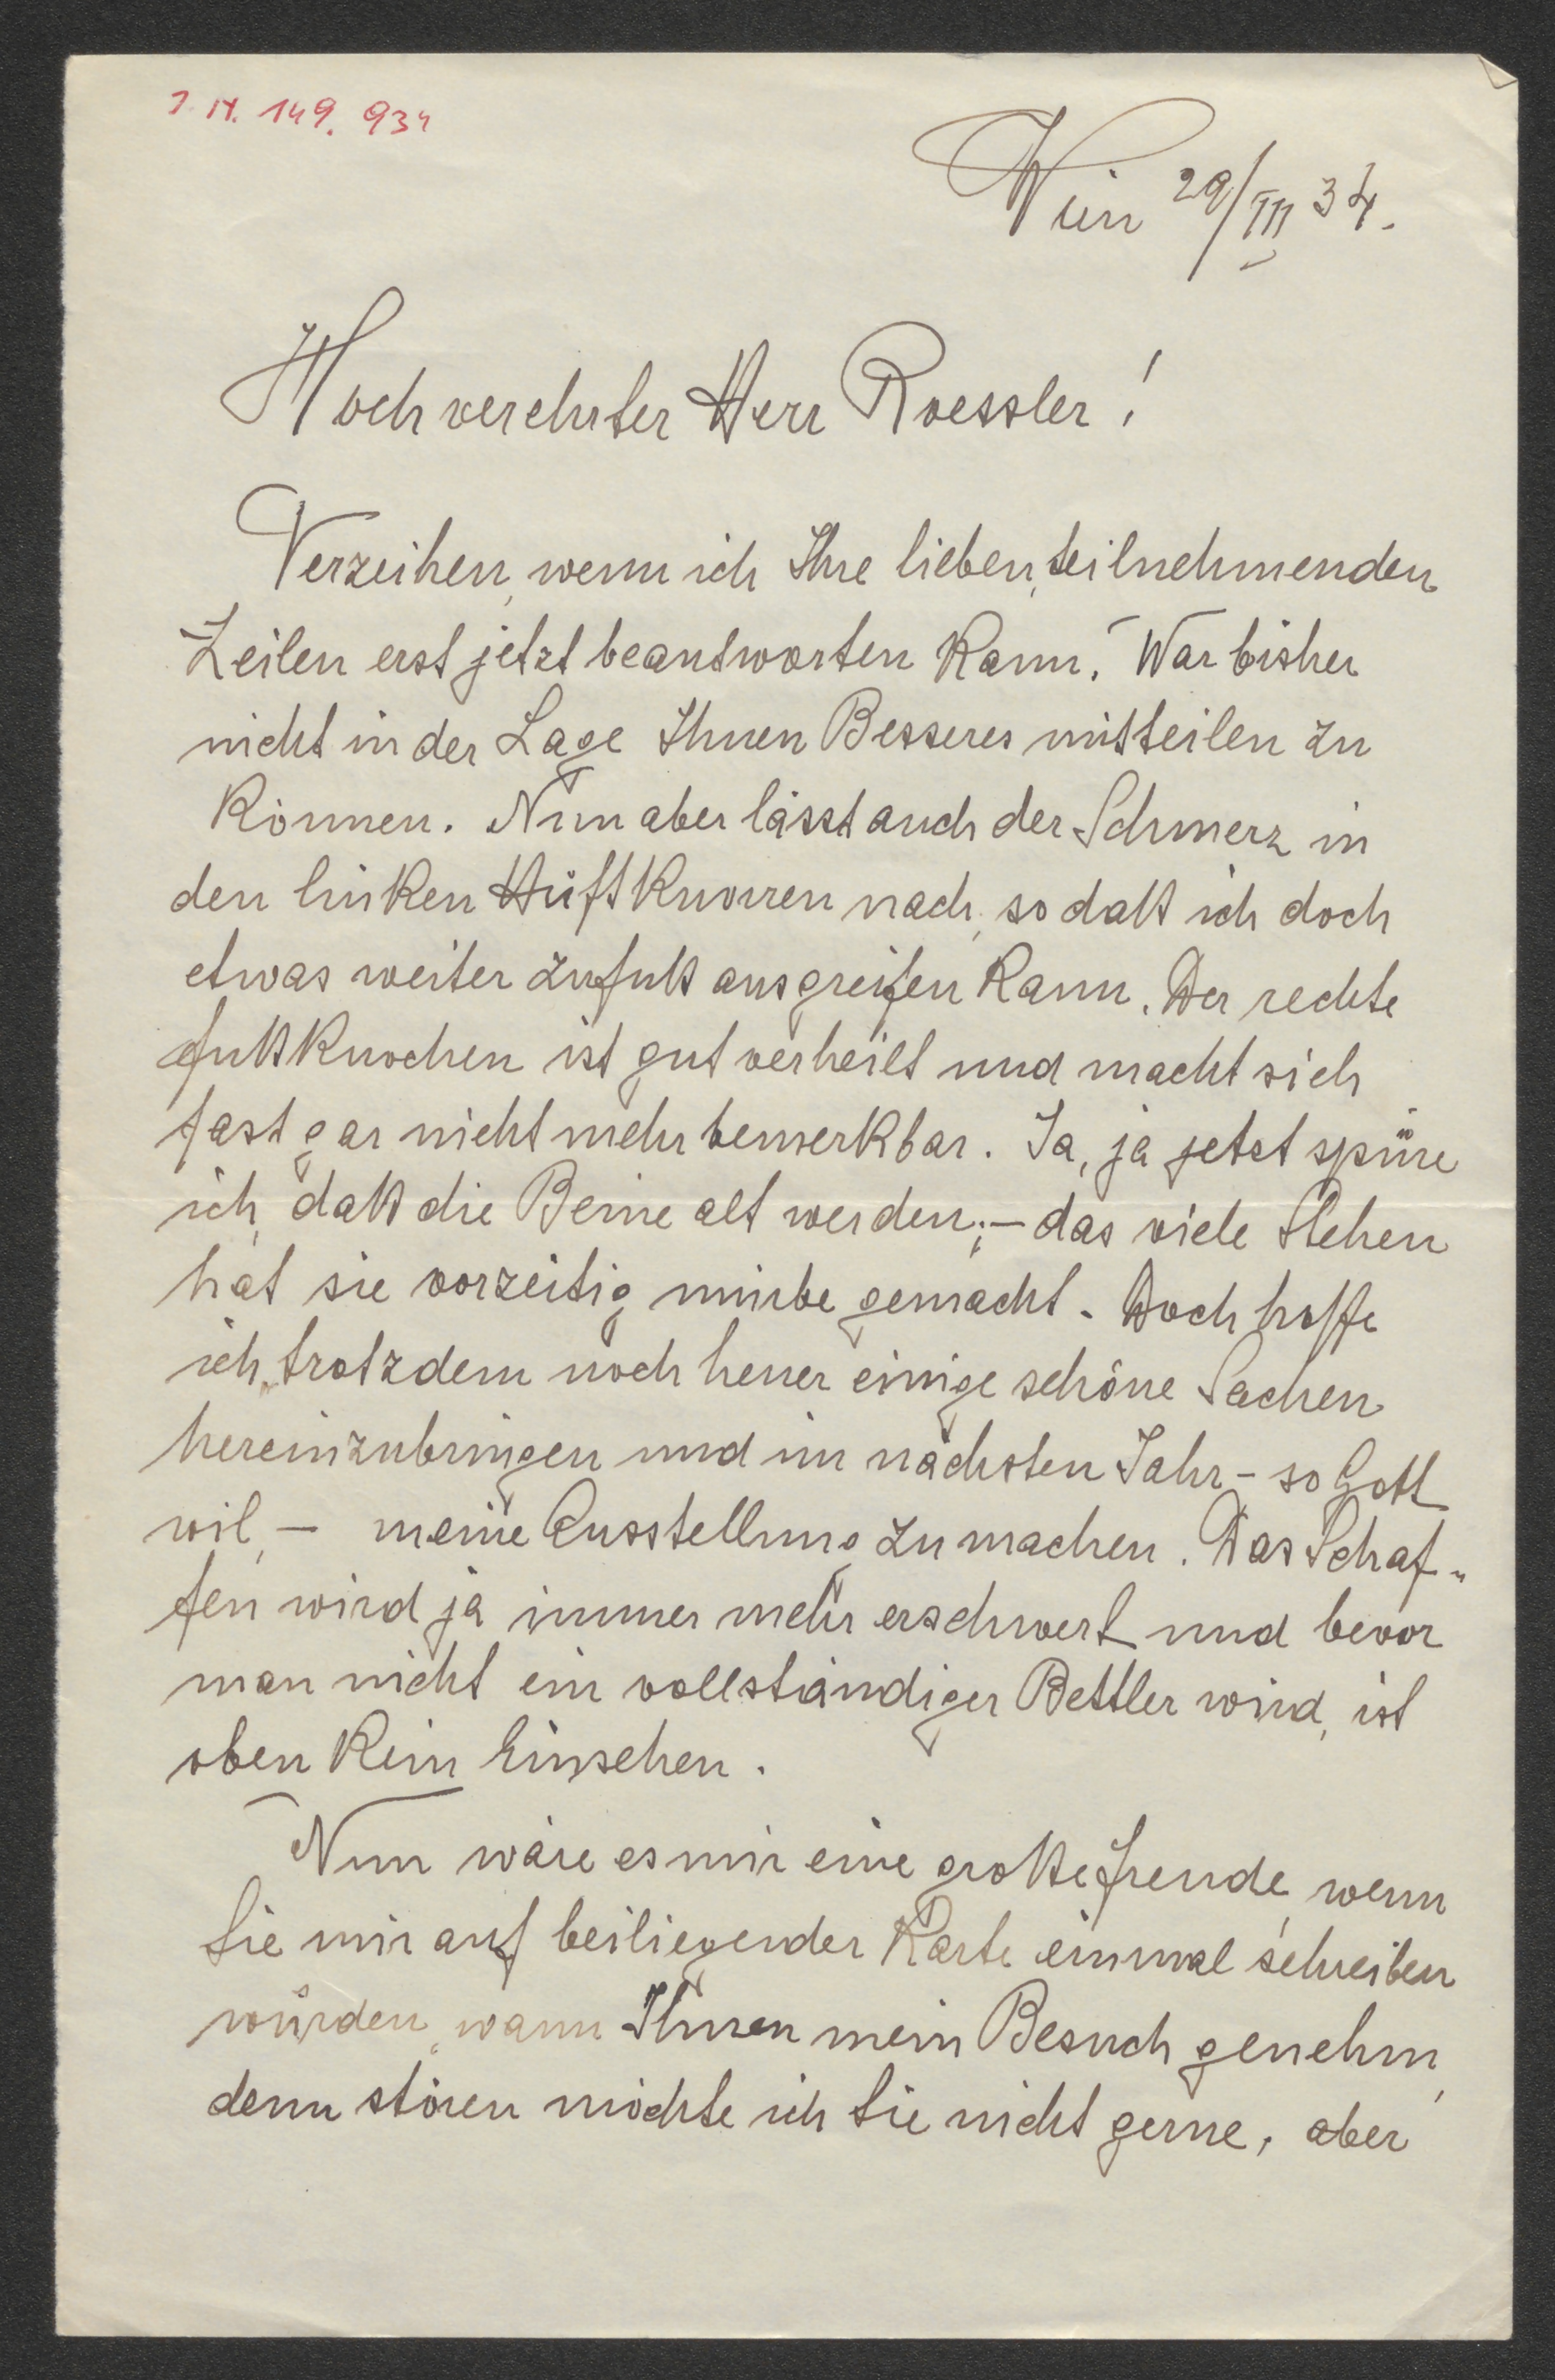 I. N. 149.934
Wien 29/III 34.
Hochverehrter Herr Roessler!
Verzeihen, wenn ich Ihre lieben, teilnehmenden
Zeilen erst jetzt beantworten kann. War bisher
nicht in der Lage Ihnen Besseres mitteilen zu
können. Nun aber lässt auch der Schmerz in
den linken Hüftknorren nach, so daß ich doch
etwas weiter zufuß ausgreifen kann. Der rechte
Fußknochen ist gut verheilt und macht sich
fast gar nicht mehr bemerkbar. Ja, ja jetzt spüre
ich, daß die Beine alt werden; – das viele Stehen
hat sie vorzeitig mürbe gemacht. Doch hoffe
ich, trotzdem noch heuer einige schöne Sachen
hereinzubringen und im nächsten Jahr – so Gott
wil, – meine Ausstellung zu machen. Das Schaf-
fen wird ja immer mehr erschwert und bevor
man nicht ein vollständiger Bettler wird, ist
oben kein Einsehen.
Nun wäre es mir eine große Freude, wenn
Sie mir auf beiliegender Karte einmal schreiben
würden, wann Ihnen mein Besuch genehm,
denn stören möchte ich Sie nicht gerne, aber